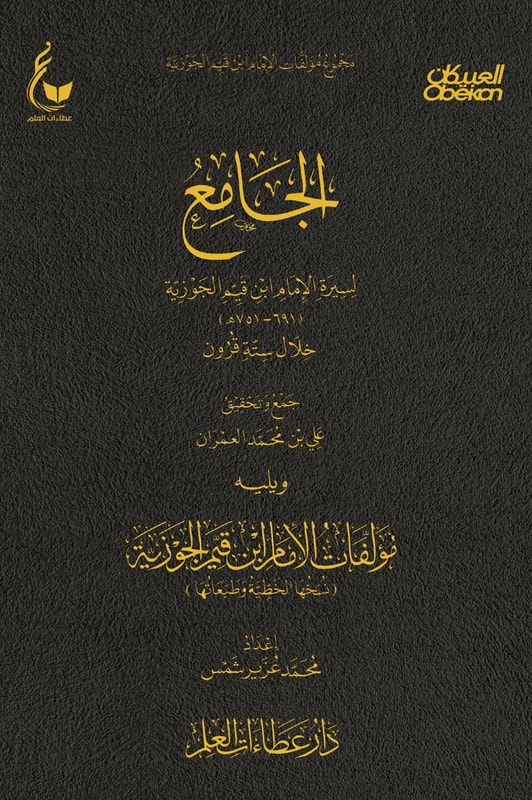 مَجْمُوعُ مُؤَلَّفَات الإمَام ابْن قَيِّم الجَوْزِيَّة
العبيكان
Obëkan
عطاءات العلم
الجَامِعُ
لِسِيرَةِ الإِمَامِ ابْنِ قَيِّمِ الجَوْزِيَّةِ
(٦٩١-٧٥١هـ)
خِلَالَ سِتَّةِ قُرُونٍ
جَمْعُ وَتَحْقِيقُ
عَلِيّ بْن مُحَمَّد العِمْرَان
ويليه
مُؤَلَّفَاتُ الإِمَامِ ابْنِ قَيِّمِ الجَوْزِيَّةِ
(نُسَخُهَا الخَطِّيَّةُ وَطَبَعَاتُهَا)
إعْدَادُ
مُحَمَّد عُزَيْر شَمْس
دَارُ عَطَاءَاتِ العِلْمِ